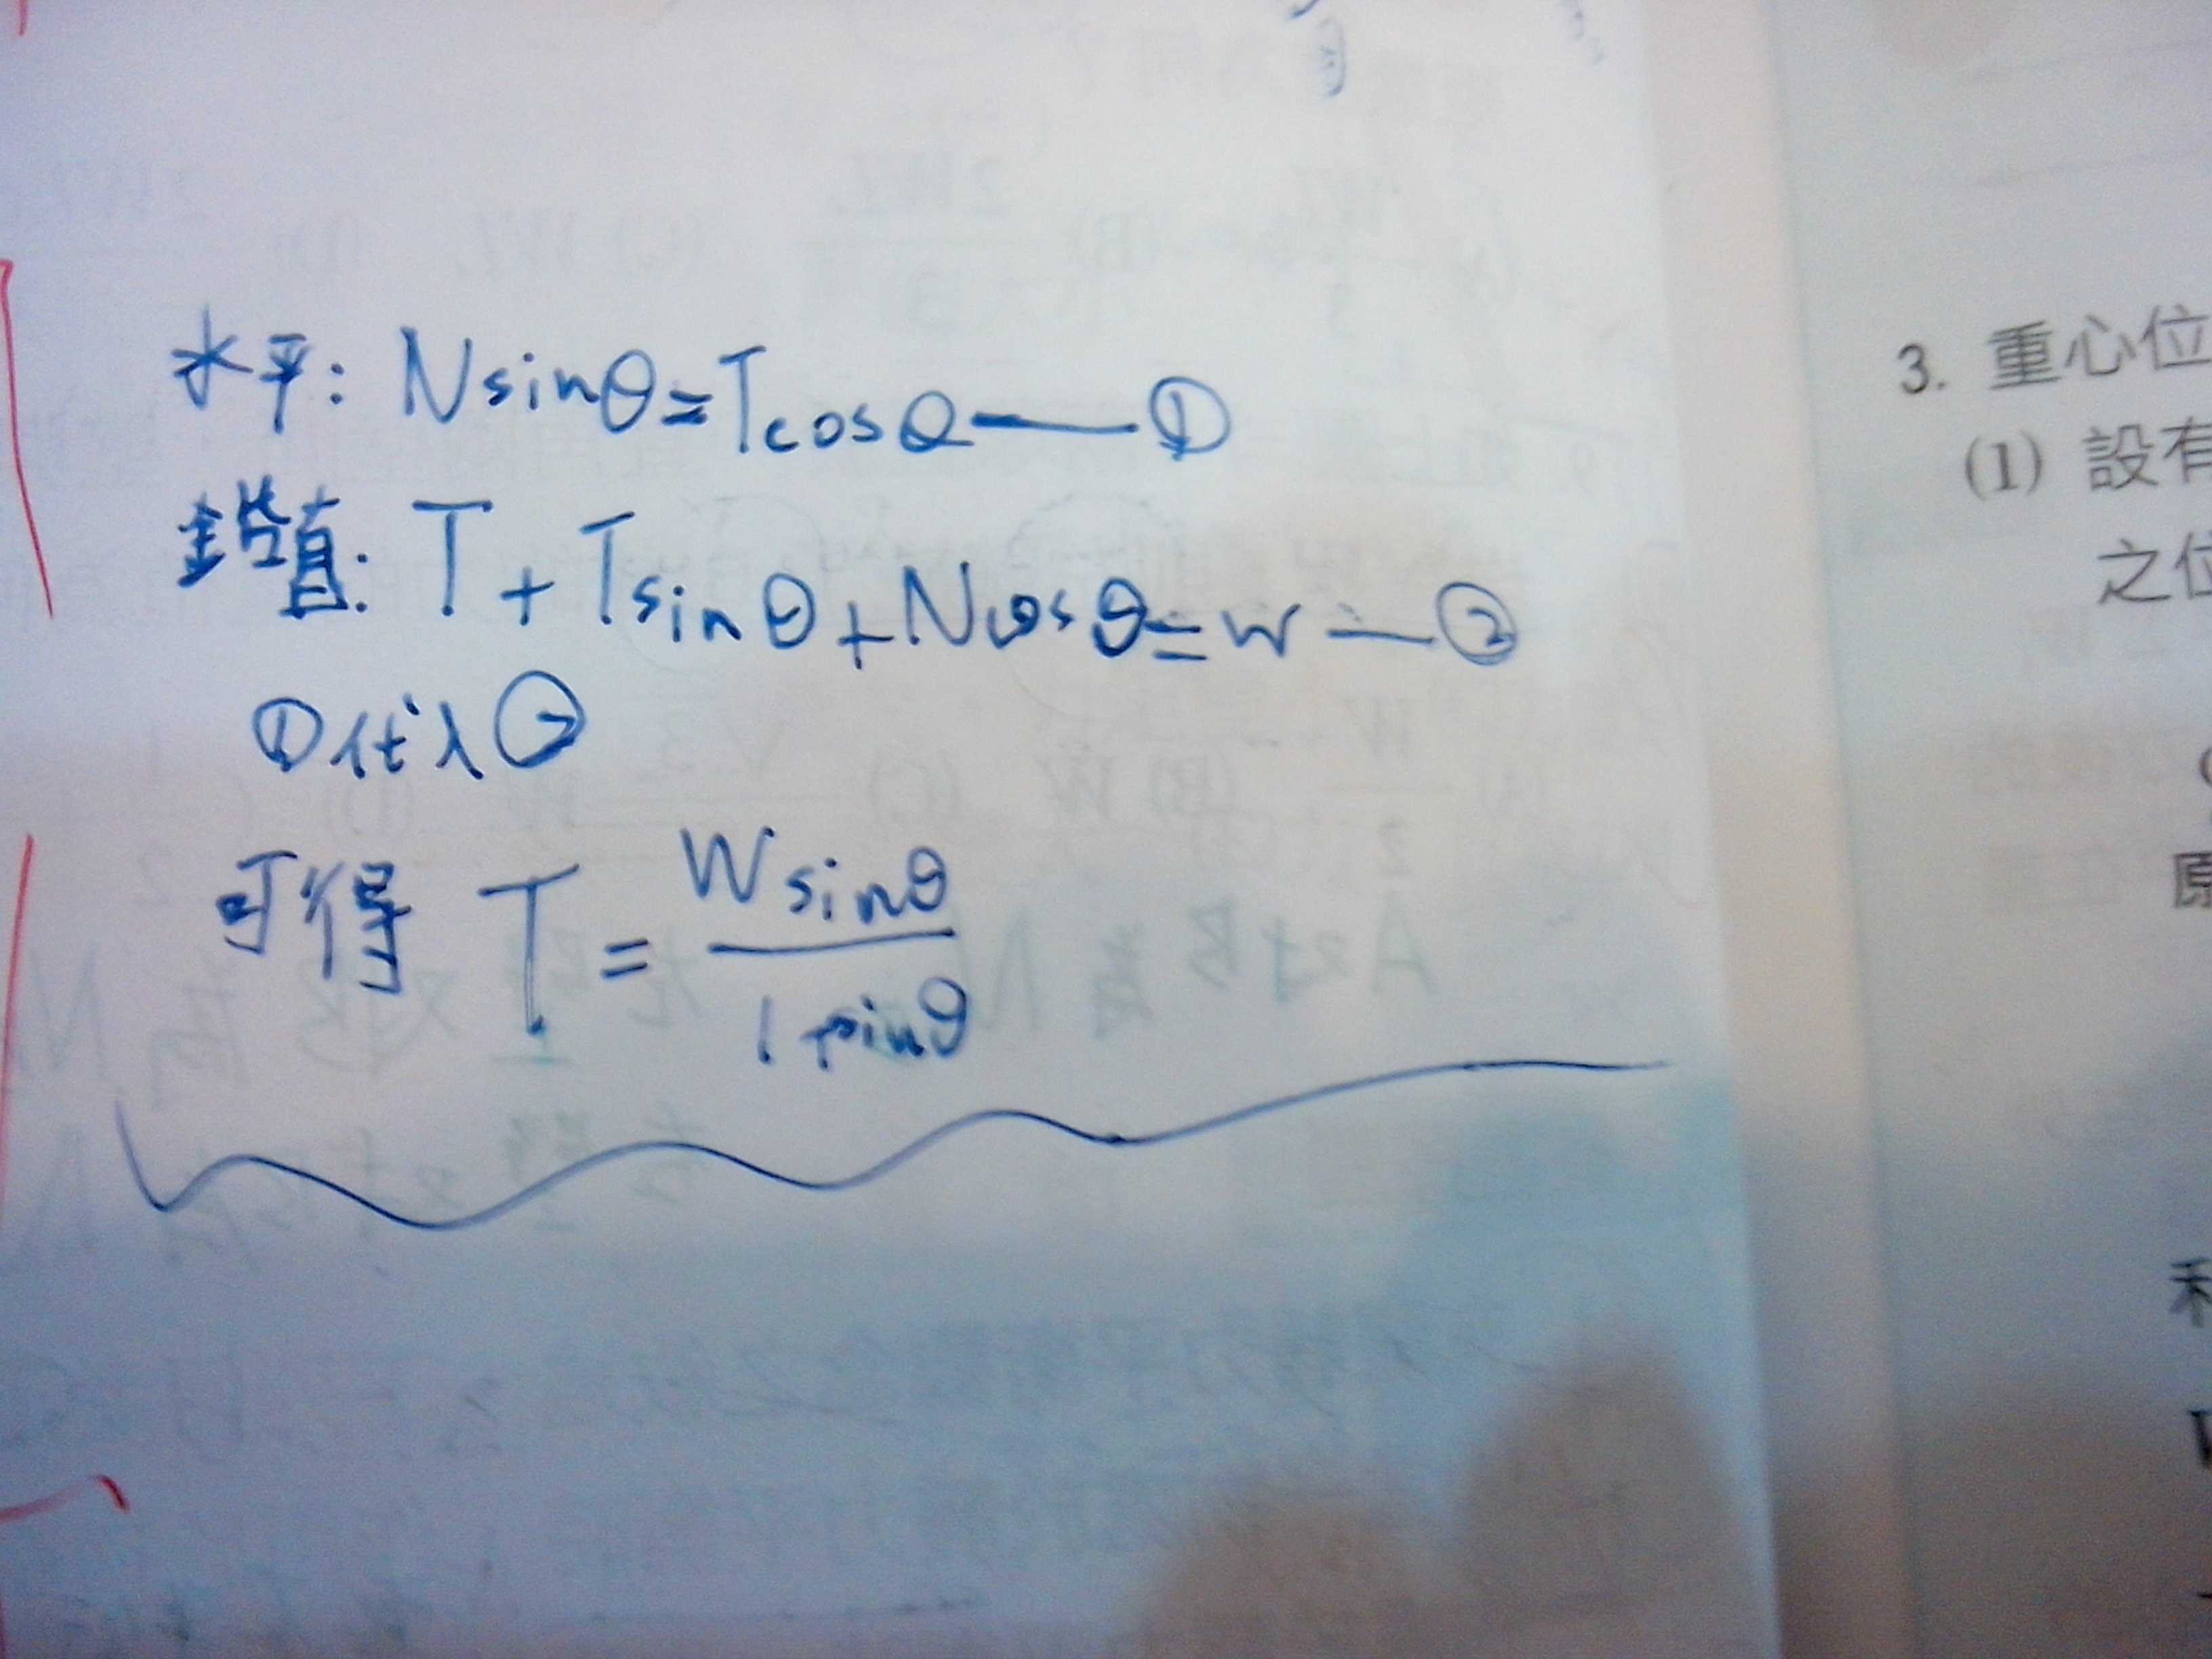 水平: Nsinθ=Tcosθ—①
鉛直: T+Tsinθ+Ncosθ=W—②
①代入②
可得 T=\frac{Wsinθ}{1+sinθ}
3. 重心位
(1) 設有
之位
原
利